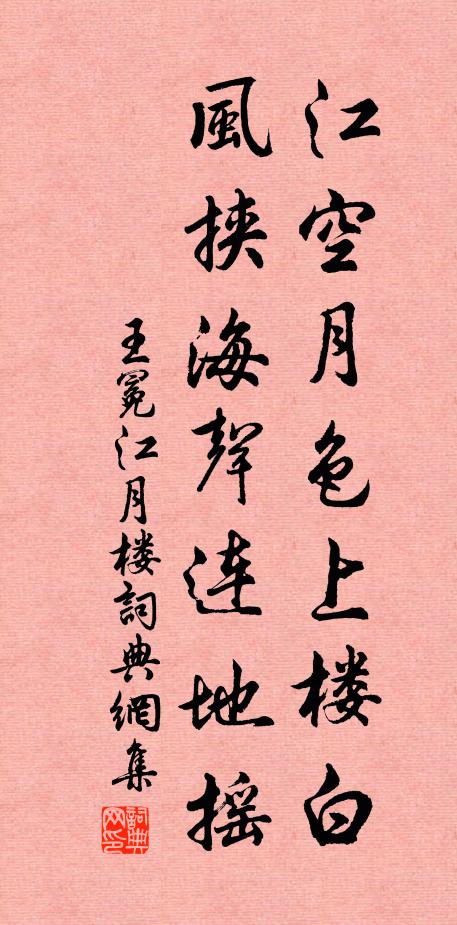 江空月色上楼白
風挟海聲连地摇
王冕江月楼詞典網集
詞典网印